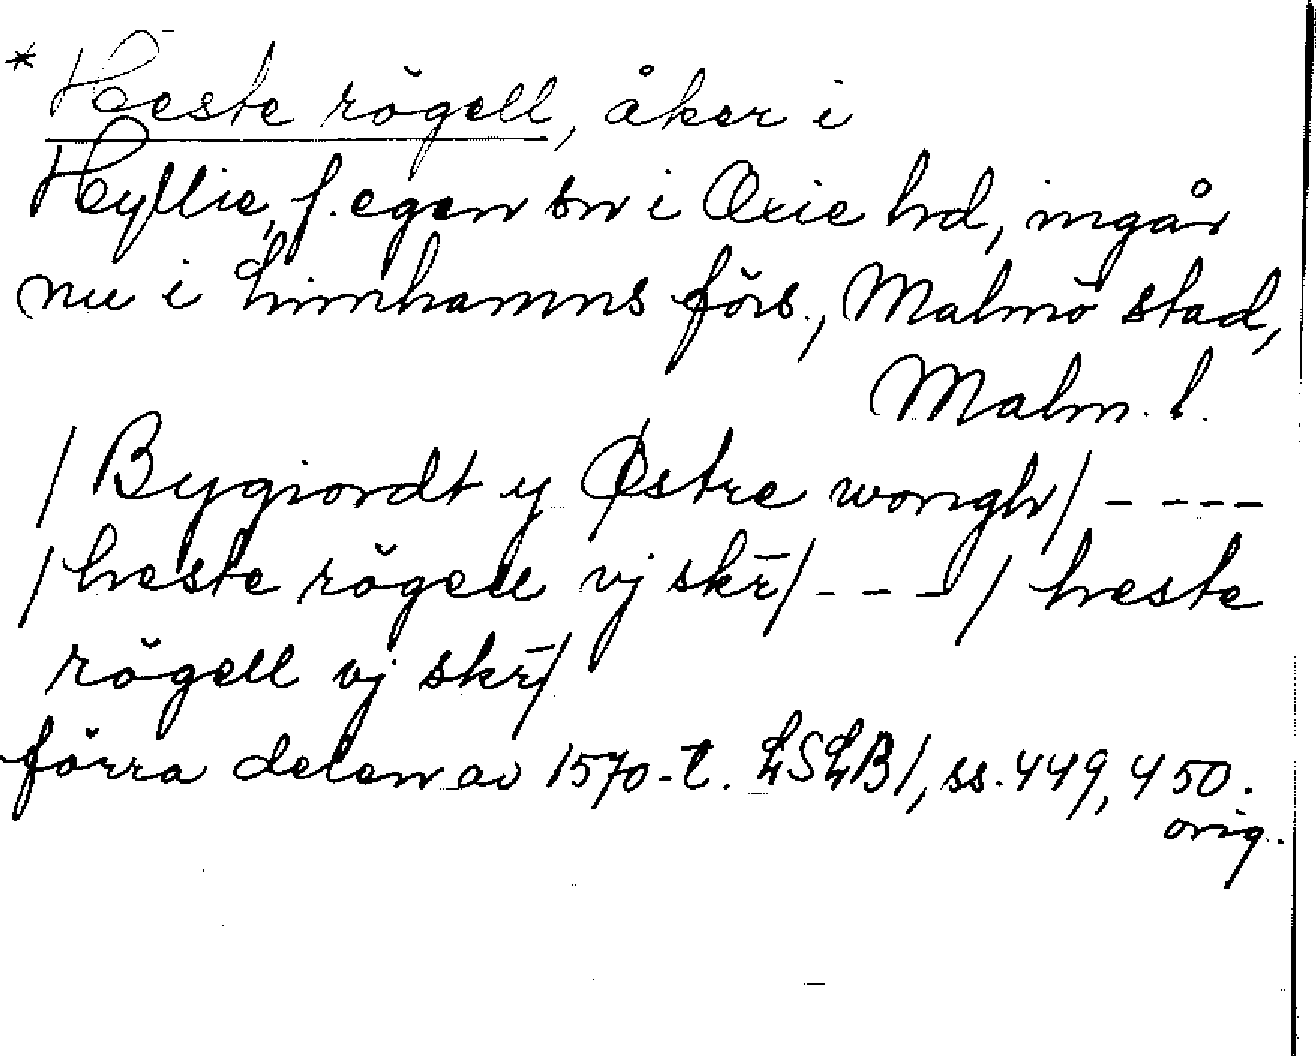 * Heste rögell, åker i
Hyllie, f. egen sn i Oxie hd, ingår
nu i Limhamns förs., Malmö stad,
Malm. l.
/ Bygiordt y Østre wongh / - - - -
/ heste rögell vj skr̄ / - - - / heste
rögell vj skr̄ /
förra delen av 1570-t. LSLB 1, ss. 449, 450.
orig.